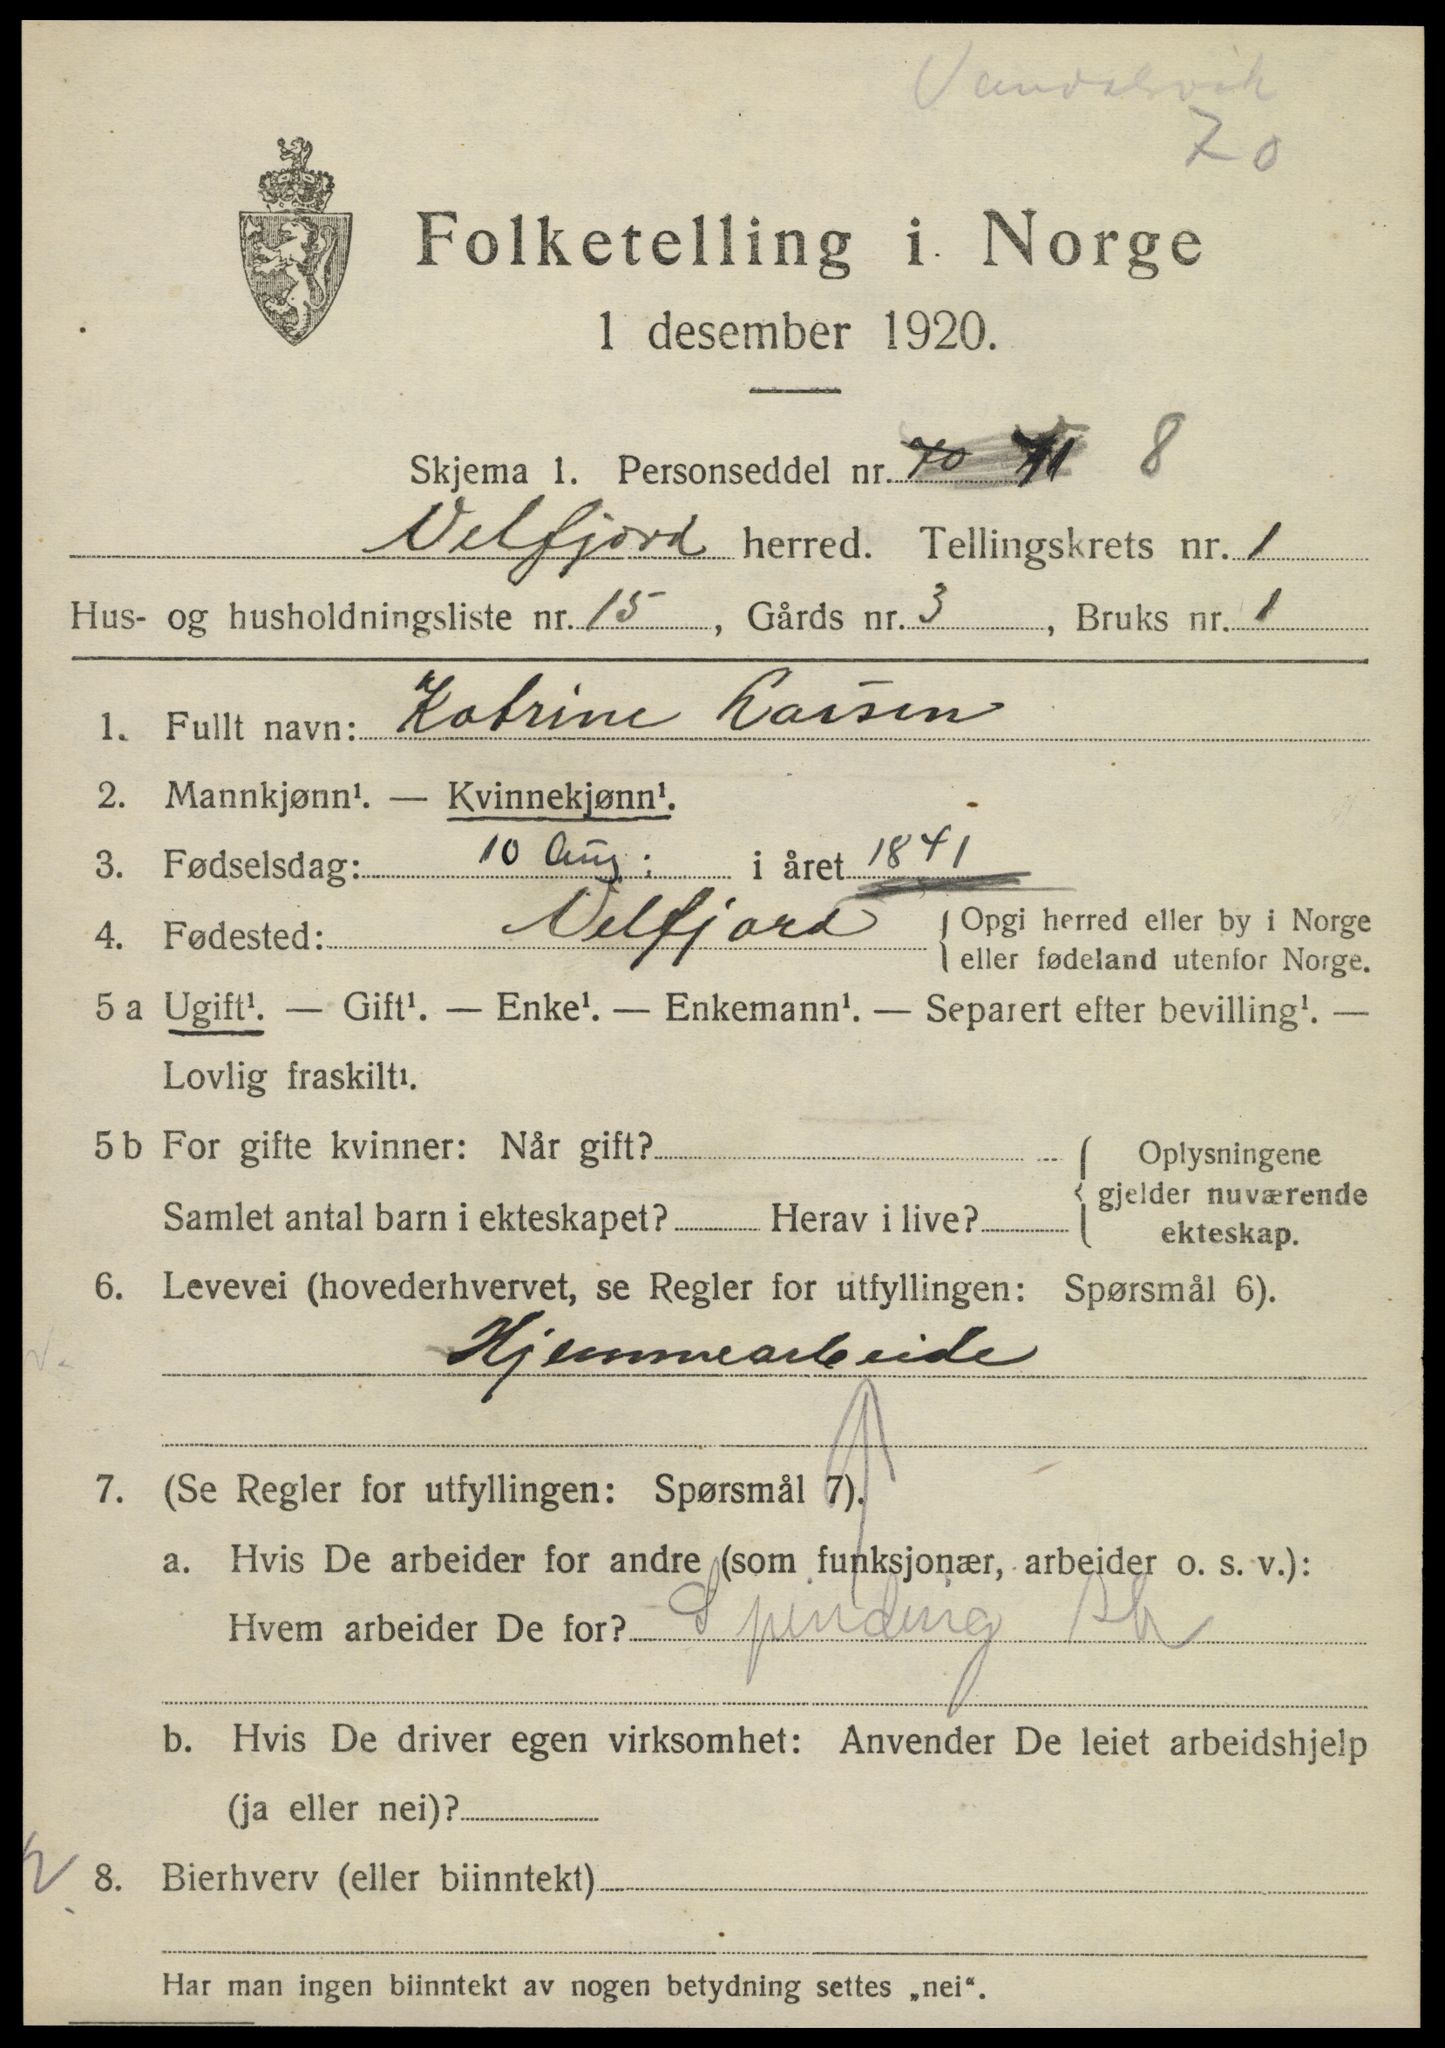 70
Folketelling i Norge
1 desember 1920.
Skjema 1. Personseddel nr. 70 71 8
Velfjord herred. Tellingskrets nr. 1
Hus- og husholdningsliste nr. 15, Gårds nr. 3, Bruks nr. 1
1. Fullt navn: Katrine Larsen
2. Mannkjønn¹. — Kvinnekjønn¹.
3. Fødselsdag: 10 Aug: i året 1841
4. Fødested: Velfjord { Opgi herred eller by i Norge
eller fødeland utenfor Norge.
5 a Ugift¹. — Gift¹. — Enke¹. — Enkemann¹. — Separert efter bevilling¹. —
Lovlig fraskilt¹.
5 b For gifte kvinner: Når gift? { Oplysningene
gjelder nuværende
Samlet antal barn i ekteskapet? Herav i live?
ekteskap.
6. Levevei (hovederhvervet, se Regler for utfyllingen: Spørsmål 6).
Hjemmearbeide
7. (Se Regler for utfyllingen: Spørsmål 7).
a. Hvis De arbeider for andre (som funksjonær, arbeider o. s. v.):
Hvem arbeider De for? Spinding
b. Hvis De driver egen virksomhet: Anvender De leiet arbeidshjelp
(ja eller nei)?
8. Bierhverv (eller biinntekt)
Har man ingen biinntekt av nogen betydning settes „nei“.